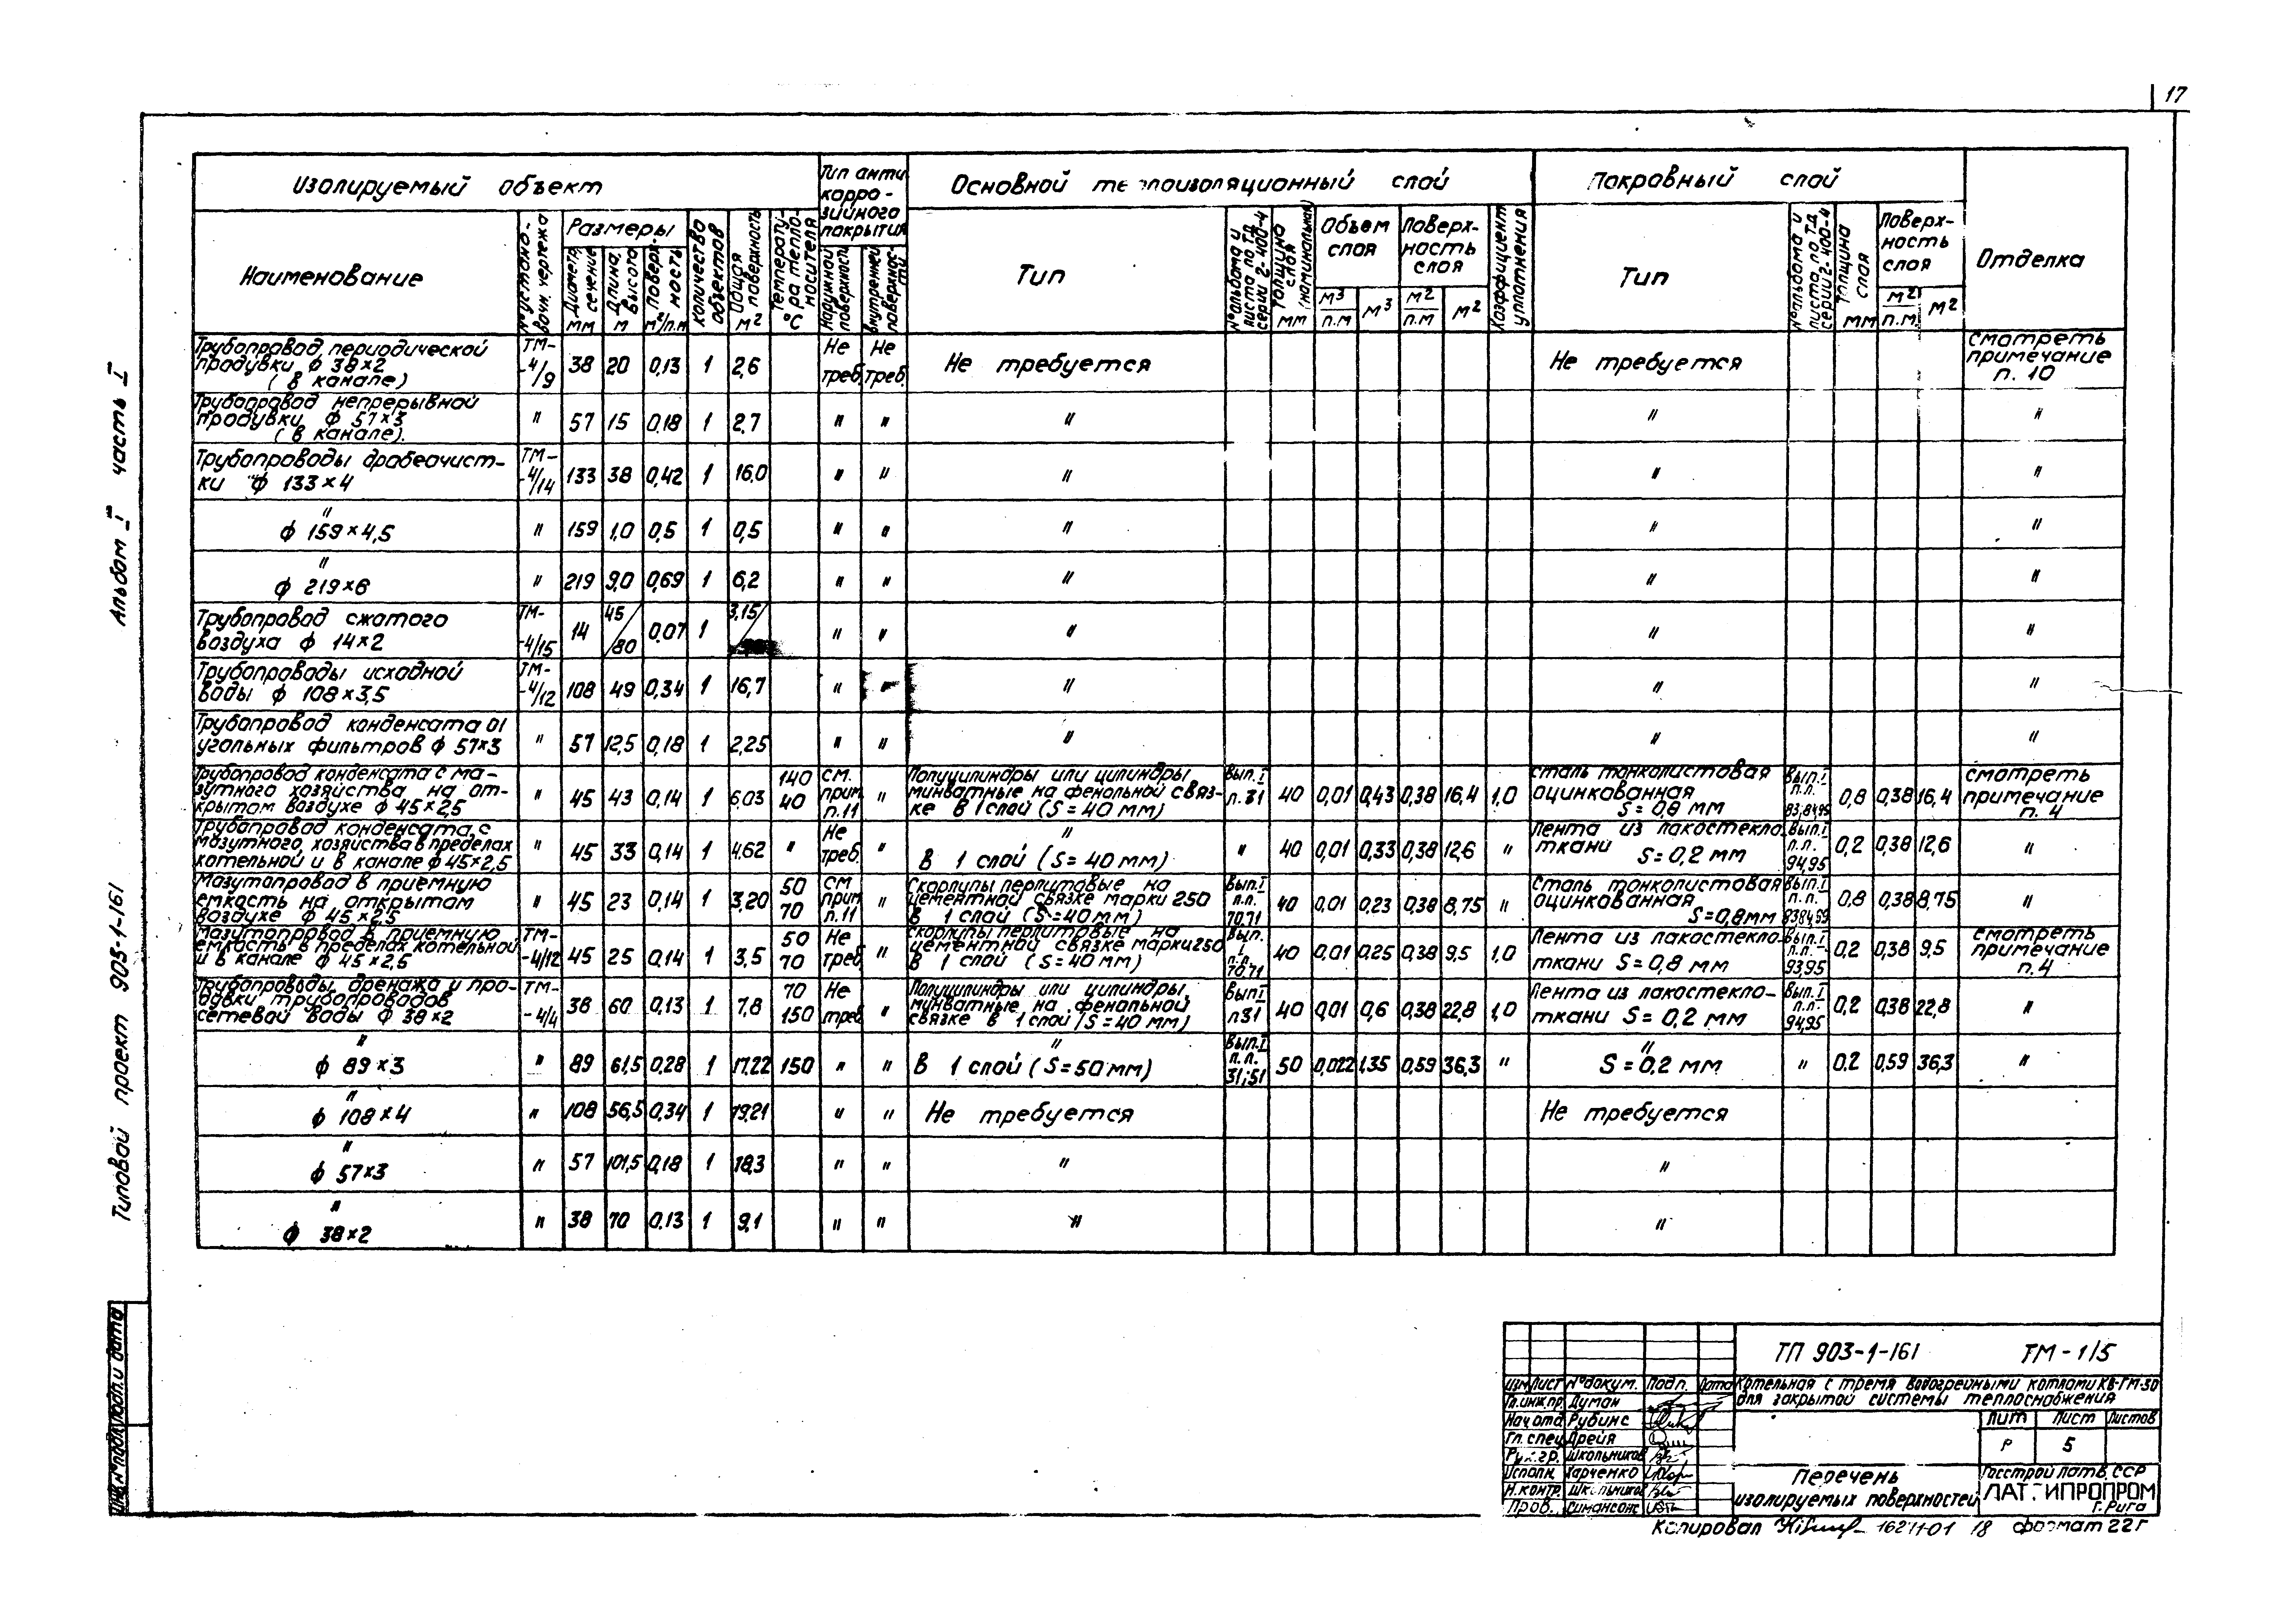 17
Альбом I часть I
Типовой проект 903-1-161
Изолируемый объект
Тип анти
корро-
зийного
покрытия
Основной теплоизоляционный слой
Покровный слой
Отделка
Наименование
№ установочн. чертежа
Размеры
Диаметр, сечение мм
Длина, высота м
Поверх-ность м²/п.м
Количество объектов
Общая поверхность м²
Температу-ра тепло-носителя °С
Наружной поверхности
Внутренней поверхнос-ти
Тип
№ альбома и листа по т.д. серии 2-400-4
Толщина слоя (номинальная) мм
Объем слоя
м³/п.м м³
Поверх-ность слоя
м²/п.м м²
Коэффициент уплотнения
Тип
№ альбома и листа по т.д. серии 2-400-4
Толщина слоя мм
Поверх-ность слоя
м²/п.м. м²
Трубопровод периодической продувки ф 38×2 (в канале) ТМ-4/9 38 20 0,13 1 2,6 Не треб. Не треб. Не требуется Не требуется смотреть примечание п. 10
Трубопровод непрерывной продувки ф 57×3 (в канале). " 57 15 0,18 1 2,7 " " " " "
Трубопроводы дробеочист-ки ф 133×4 ТМ-4/14 133 38 0,42 1 16,0 " " " " "
" ф 159×4,5 " 159 1,0 0,5 1 0,5 " " " " "
" ф 219×6 " 219 9,0 0,69 1 6,2 " " " " "
Трубопровод сжатого воздуха ф 14×2 ТМ-4/15 14 45/80 0,07 1 3,15/ " " " " "
Трубопроводы исходной воды ф 108×3,5 ТМ-4/12 108 49 0,34 1 16,7 " " " " "
Трубопровод конденсата от угольных фильтров ф 57×3 " 57 12,5 0,18 1 2,25 " " " " "
Трубопровод конденсата с ма-зутного хозяйства на от-крытом воздухе ф 45×2,5 " 45 43 0,14 1 6,03 140 40 см. прим. п.11 " Полуцилиндры или цилиндры минватные на фенольной связ-ке в 1 слой (S=40 мм) Вып. I п.31 40 0,01 0,43 0,38 16,4 1,0 Сталь тонколистовая оцинкованная S=0,8 мм Вып. I п.п. 83,84,95 0,8 0,38 16,4 смотреть примечание п. 4
Трубопровод конденсата с мазутного хозяйства в пределах котельной и в канале ф 45×2,5 " 45 33 0,14 1 4,62 " Не треб. " " В 1 слой (S=40 мм) " 40 0,01 0,33 0,38 12,6 " Лента из лакостекло ткани S=0,2 мм Вып. I п.п. 94,95 0,2 0,38 12,6 "
Мазутопровод в приемную емкость на открытом воздухе ф 45×2,5 " 45 23 0,14 1 3,20 50 70 см прим п.11 " Скорлупы перлитовые на цементной связке марки 250 в 1 слой (S=40мм) Вып. I п.п. 70,71 40 0,01 0,23 0,38 8,75 " Сталь тонколистовая оцинкованная S=0,8мм Вып. I п.п. 0,8 0,38 8,75 "
Мазутопровод в приемную емкость в пределах котельной и в канале ф 45×2,5 ТМ-4/12 45 25 0,14 1 3,5 50 70 Не треб. " Скорлупы перлитовые на цементной связке марки 250 в 1 слой (S=40мм) Вып. I п.п. 70,71 40 0,01 0,25 0,38 9,5 1,0 Лента из лакостекло-ткани S=0,8 мм Вып. I п.п. 93,95 0,2 0,38 9,5 смотреть примечание п.4
Трубопроводы дренажа и про-дувки трубопроводов сетевой воды ф 38×2 ТМ-4/4 38 60 0,13 1 7,8 70 150 Не треб " Полуцилиндры или цилиндры минватные на фенольной связке в 1 слой (S=40мм) Вып I п31 40 0,01 0,6 0,38 22,8 1,0 Лента из лакостекло-ткани S=0,2 мм Вып. I п.п. 94,95 0,2 0,38 22,8 "
" ф 89×3 " 89 61,5 0,28 1 17,22 150 " " " В 1 слой (S=50мм) Вып. I п.п. 31;51 50 0,022 1,35 0,59 36,3 " " S=0,2 мм " 0,2 0,59 36,3 "
" ф 108×4 " 108 56,5 0,34 1 19,21 " " Не требуется Не требуется
" ф 57×3 " 57 101,5 0,18 1 18,3 " " " "
" ф 38×2 " 38 70 0,13 1 9,1 " " " "
Инв. № подл. Подп. и дата
ТП 903-1-161 ТМ-1/5
Изм Лист № докум. Подп. Дата
Котельная с тремя водогрейными котлами КВ-ГМ-50
для закрытой системы теплоснабжения
Гл.инж.пр. Думан
Нач.отд. Рубинс
Гл. спец. Дрейя
Рук. гр. Школьников
Исполн. Харченко
Н.контр. Школьников
Пров. Симансонс
Лит Лист Листов
Р 5
Перечень
изолируемых поверхностей
Госстрой Латв. ССР
ЛАТГИПРОПРОМ
г. Рига
Копировал 18 формат 22г